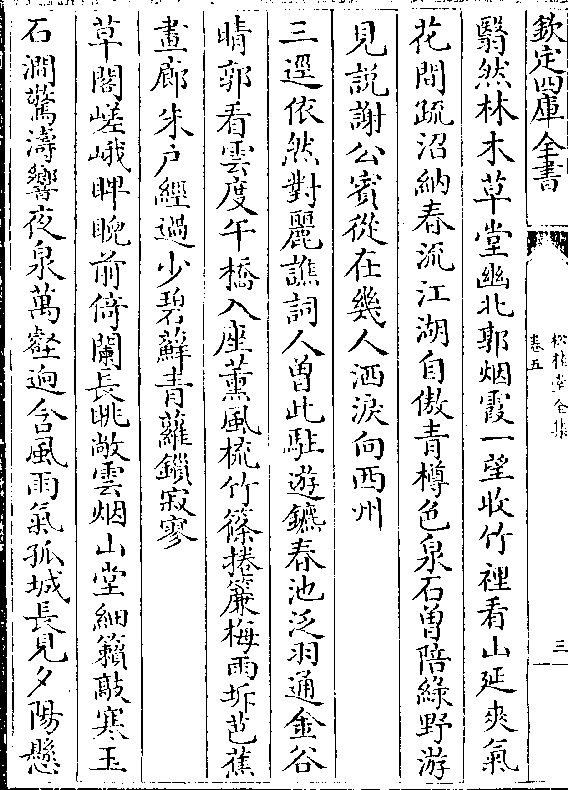 欽定四庫全書
松桂堂全集
卷五
三
翳然林木草堂幽北郭烟霞一望收竹裡看山延爽氣
花間疏沼納春流江湖自傲青樽色泉石曽陪綠野游
見説謝公賓從在幾人洒淚向西州
三逕依然對麗譙詞人曽此駐遊鑣春池泛羽通金谷
晴郭看雲度午橋入座薫風梳竹篠捲簾梅雨坼芭蕉
畫廊朱户經過少碧蘚青蘿鎖寂寥
草閣嵯峨睥睨前倚闌長眺敞雲烟山堂細籟敲寒玉
石澗驚濤響夜泉萬壑逈含風雨氣孤城長見夕陽懸